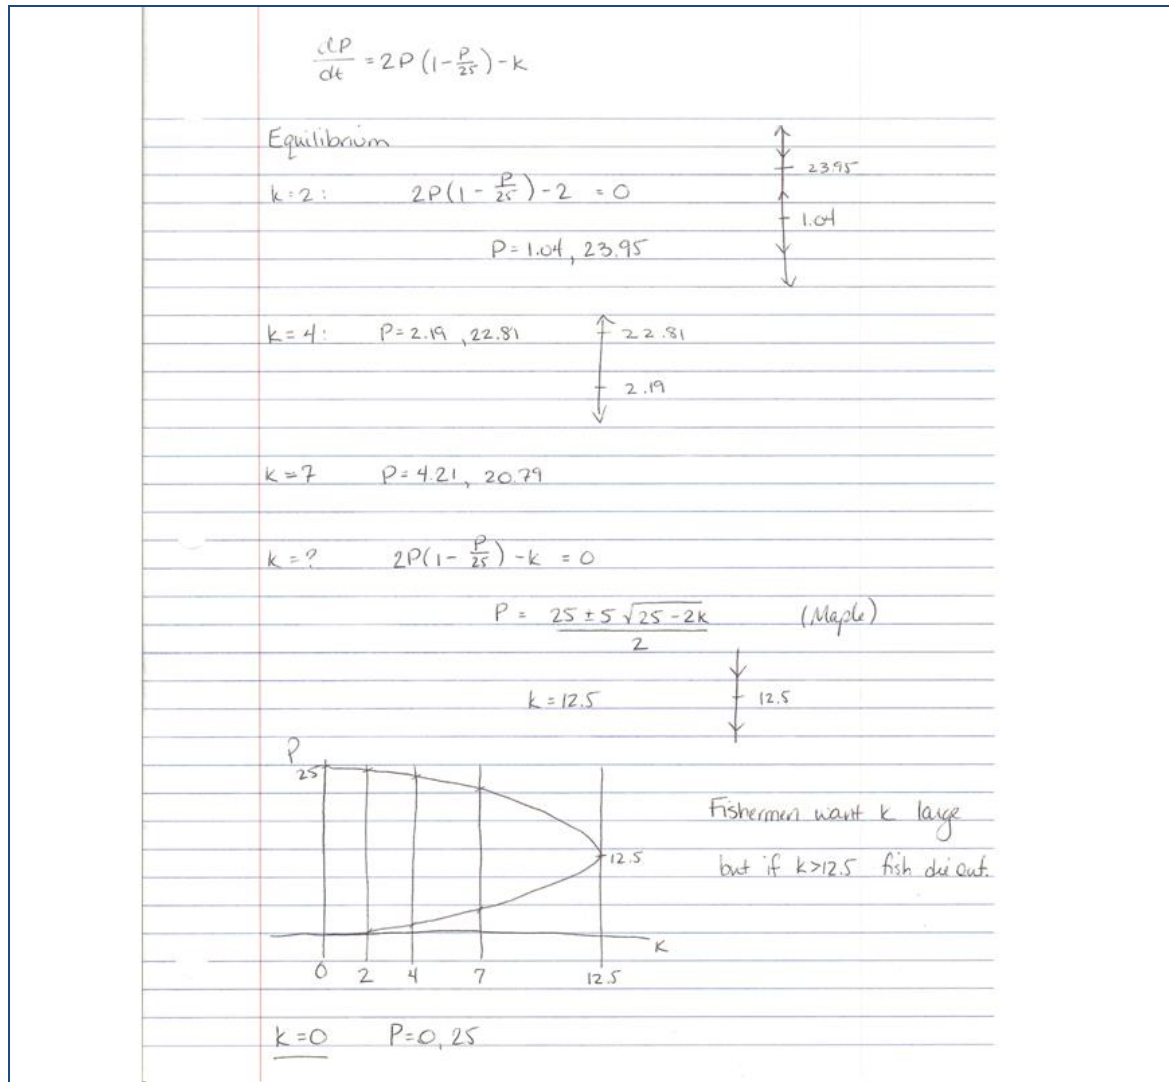 dP/dt = 2P(1-P/25)-k
Equilibrium
k=2: 2P(1-P/25)-2 = 0
P=1.04, 23.95
23.95
1.04
k=4: P=2.19, 22.81
22.81
2.19
k=7 P=4.21, 20.79
k=? 2P(1-P/25)-k = 0
P = (25±5√(25-2k))/2 (Maple)
k=12.5
12.5
P
25
12.5
K
0 2 4 7 12.5
Fishermen want k large
but if k>12.5 fish die out.
k=0 P=0, 25